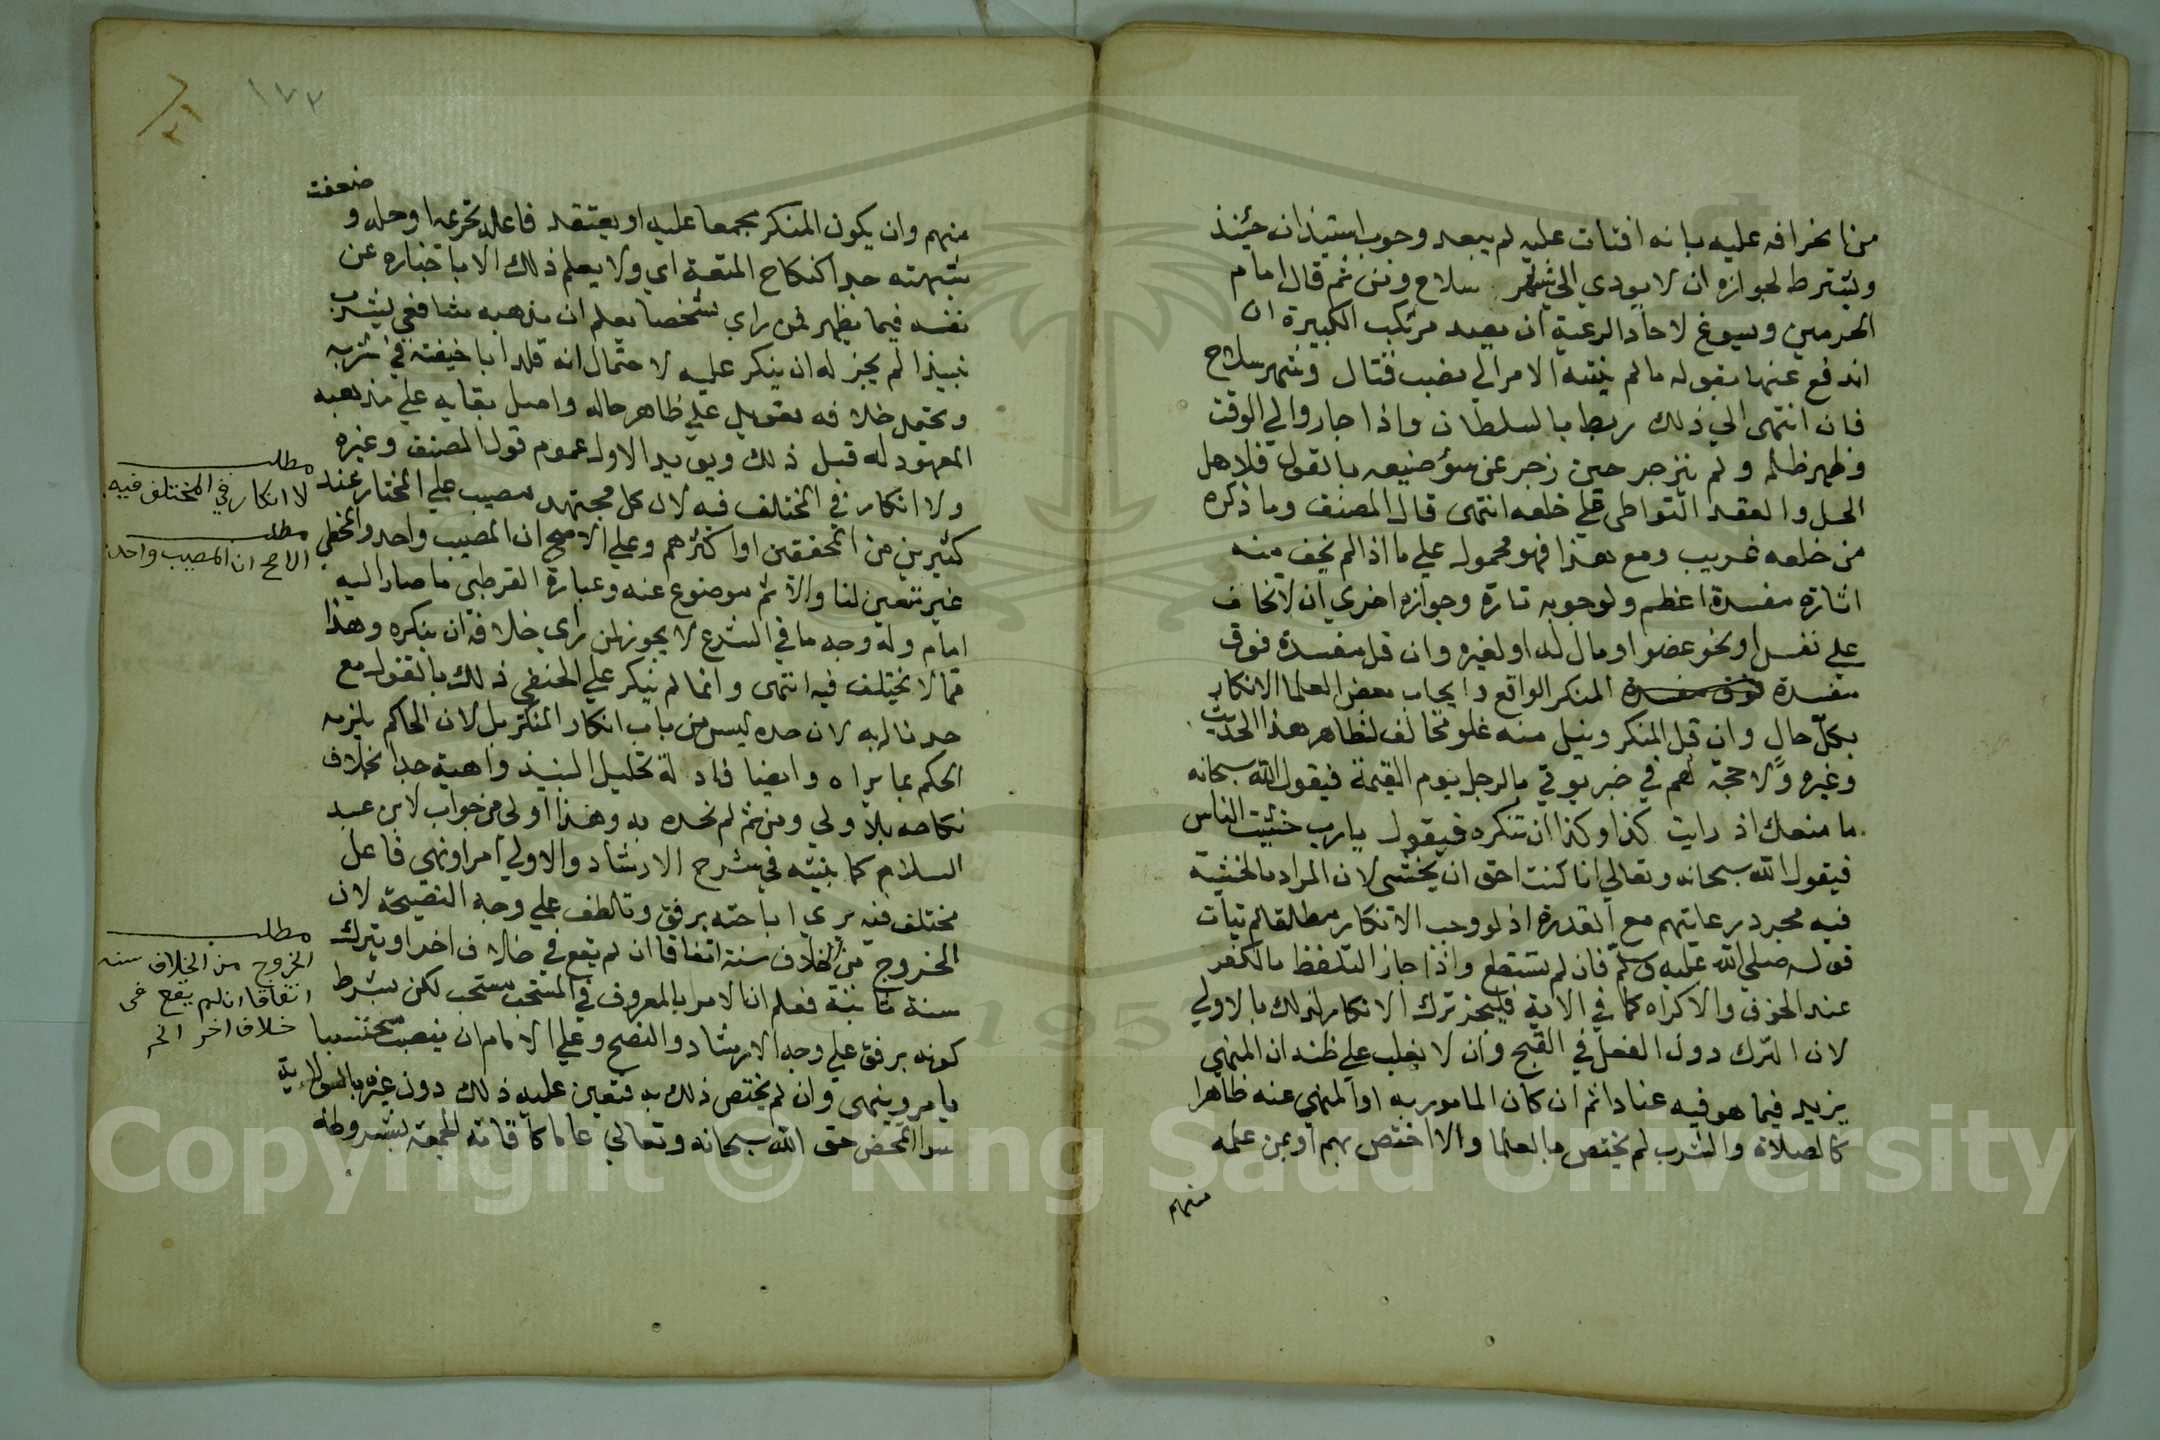 من انحرافه عليه بانه افتات عليه لم يبعد وجوب استيذانه حينئذ
ويشترط لجوازه ان لا يودي الي شهر سلاح ومن ثم قال امام
الحرمين ويسوغ لاحاد الرعية ان يصد مرتكب الكبيرة ان
اندفع عنها بقوله ما لم ينته الامر الي نصب قتال وشهر سلاح
فان انتهى الي ذلك ربط بالسلطان واذا جار والي الوقت
وظهر ظلمه ولم ينزجر حين زجر عن سؤ صنيعه بالقول فلاهل
الحل والعقد التواطي علي خلعه انتهى قال المصنف وما ذكره
من خلعه غريب ومع هذا فهو محمول علي ما اذا لم يخف منه
اثارة مفسدة اعظم ولوجوبه تارة وجوازه اخري ان لا يخاف
علي نفس او نحو عضو او مال له او لغيره وان قل مفسدة فوق
مفسدة المنكر الواقع وايجاب بعض العلما الانكار
بكل حال وان قتل المنكر ونيل منه غلو مخالف لظاهر هذا الحديث
وغيره ولا حجة لهم في خبر يوتي بالرجل يوم القيمة فيقول الله سبحانه
ما منعك اذ رايت كذا وكذا ان تنكره فيقول يا رب خشيت الناس
فيقول الله سبحانه وتعالي انا كنت احق ان يخشى لان المراد بالخشية
فيه مجرد رعايتهم مع القدرة اذ لو وجب الانكار مطلقا لم يتات
قوله صلي الله عليه وسلم فان لم يستطع واذا جاز التلفظ بالكفر
عند الخوف والاكراه كما في الاية فليجز ترك الانكار لذلك بالاولي
لان الترك دون الفعل في القبح وان لا يغلب علي ظنه ان المنهي
يزيد فيما هو فيه عنادا ثم ان كان المامور به او المنهي عنه ظاهرا
كالصلاة والشرب لم يختص بالعلما والا اختص بهم او بمن علمه
منهم
١٧٣
منهم وان يكون المنكر مجمعا عليه او يعتقد فاعله تحريمه او حله و
ضعفت
شبهته جدا كنكاح المتعة اي ولا يعلم ذلك الا باخباره عن
نفسه فيما يظهر فمن راي شخصا يعلم ان مذهبه شافعي يشرب
نبيذا لم يجز له ان ينكر عليه لاحتمال انه قلد ابا حنيفة في شربه
ويحتمل خلافه تعويل علي ظاهر حاله واصل بقايه علي مذهبه
المعهود له قبل ذلك ويويد الاول عموم قول المصنف وغيره
ولا انكار في المختلف فيه لان كل مجتهد مصيب علي المختار عند
كثيرين من المحققين او اكثرهم وعلي الاصح ان المصيب واحد والمخطي
غير متعين لنا والاثم موضوع عنه وعبارة القرطبي ما صار اليه
امام وله وجه ما في الشرع لا يجوز لمن راي خلافه ان ينكره وهذا
مما لا يختلف فيه انتهى وانما لم ينكر علي الحنفي ذلك بالقول مع
حدنا له به لان حده ليس من باب انكار المنكر بل لان الحاكم يلزمه
الحكم بما يراه وايضا فادلة تحليل النبيذ واهية جدا بخلاف
نكاحه بلا ولي ومن ثم لم نحده به وهذا اولى من جواب لابن عبد
السلام كما بينته في شرح الارشاد والاولي امر او نهي فاعل
مختلف فيه يري اباحته برفق وتلطف علي وجه النصيحة لان
الخروج من الخلاف سنة اتفاقا ان لم يقع في خلاف اخر او بترك
سنة ثابتة فعلم ان الامر بالمعروف في المستحب مستحب لكن بشرط
كونه برفق علي وجه الارشاد والنصح وعلي الامام ان ينصب محتسبا
يامر وينهى وان لم يختص ذلك به فتعين عليه ذلك دون غيره بالولاية
سوا المحض حق الله سبحانه وتعالي عاما كاقامة الجمعة بشروطه
مطلب
لا انكار في المختلف فيه
مطلب
الاصح ان المصيب واحد
مطلب
الخروج من الخلاف سنة
اتفاقا ان لم يقع في
خلاف اخر الخ
Copyright © King Saud University
1957